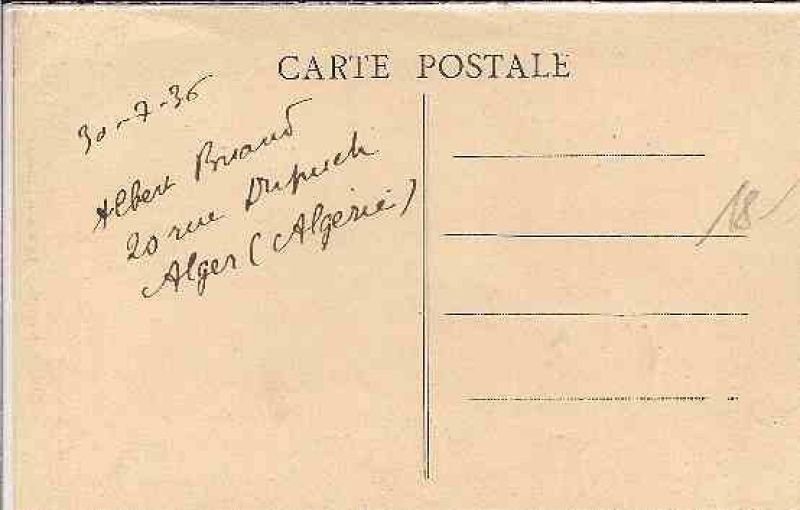 CARTE POSTALE
30-7-36
Albert Briand
20 rue Dupuch
Alger (Algérie)
18